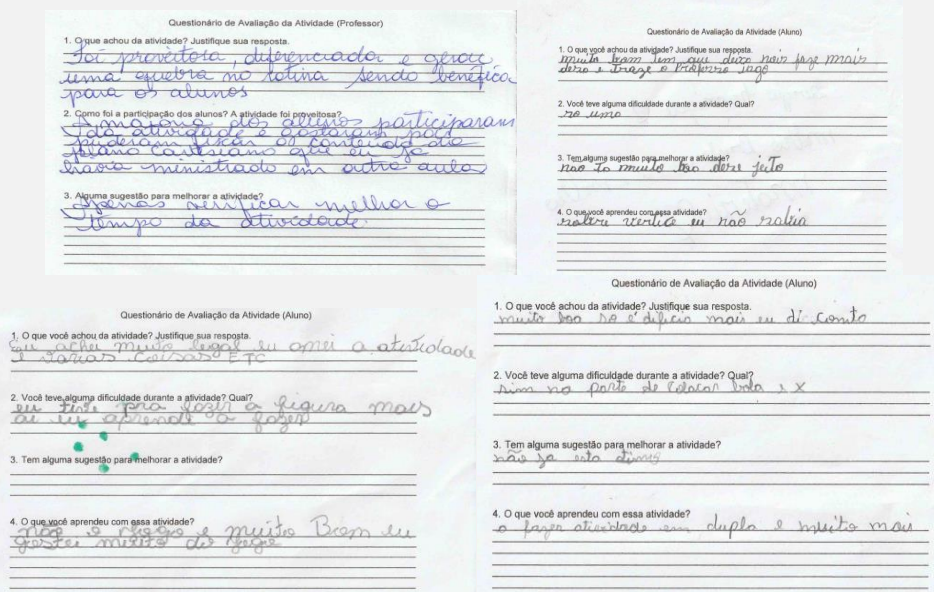 Questionário de Avaliação da Atividade (Professor)
1. O que achou da atividade? Justifique sua resposta.
Foi proveitosa, diferenciada e gerou
uma quebra no rotina sendo benéfica
para os alunos
2. Como foi a participação dos alunos? A atividade foi proveitosa?
A maioria dos alunos participaram
da atividade e gostaram pois
puderam fixar os conteúdo do
plano cartesiano que eu já
havia ministrado em outra aula
3. Alguma sugestão para melhorar a atividade?
Apenas verificar melhor o
tempo da atividade.
Questionário de Avaliação da Atividade (Aluno)
1. O que você achou da atividade? Justifique sua resposta.
muito bom tem que dexo nois faze mais
deso e traze o
2. Você teve alguma dificuldade durante a atividade? Qual?
3. Tem alguma sugestão para melhorar a atividade?
nao ta muito bao dese jeito
4. O que você aprendeu com essa atividade?
vertice eu não sabia
Questionário de Avaliação da Atividade (Aluno)
1. O que você achou da atividade? Justifique sua resposta.
eu achei muito legal eu amei a atividade
e varias coisas ETC
2. Você teve alguma dificuldade durante a atividade? Qual?
eu tive pra fazer a figura mais
ai eu aprendi a fazer
3. Tem alguma sugestão para melhorar a atividade?
4. O que você aprendeu com essa atividade?
não e muito Bom eu
gostei muito
Questionário de Avaliação da Atividade (Aluno)
1. O que você achou da atividade? Justifique sua resposta.
muito boa so é dificio mais eu di conta
2. Você teve alguma dificuldade durante a atividade? Qual?
sim na parte de colocar bola e x
3. Tem alguma sugestão para melhorar a atividade?
não ja esta
4. O que você aprendeu com essa atividade?
a fazer atividade em dupla e muito mais